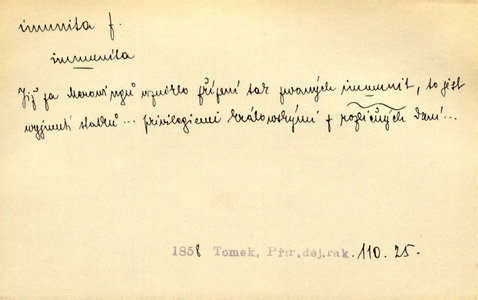 imunita f.
immunita
Již za Merovingů vzniklo zřízení tak zvaných immunit, to jest
vyjmutí statků... privilegiemi královskými z rozličných daní...
1858 Tomek, Př.dej.rak. 110. 25.